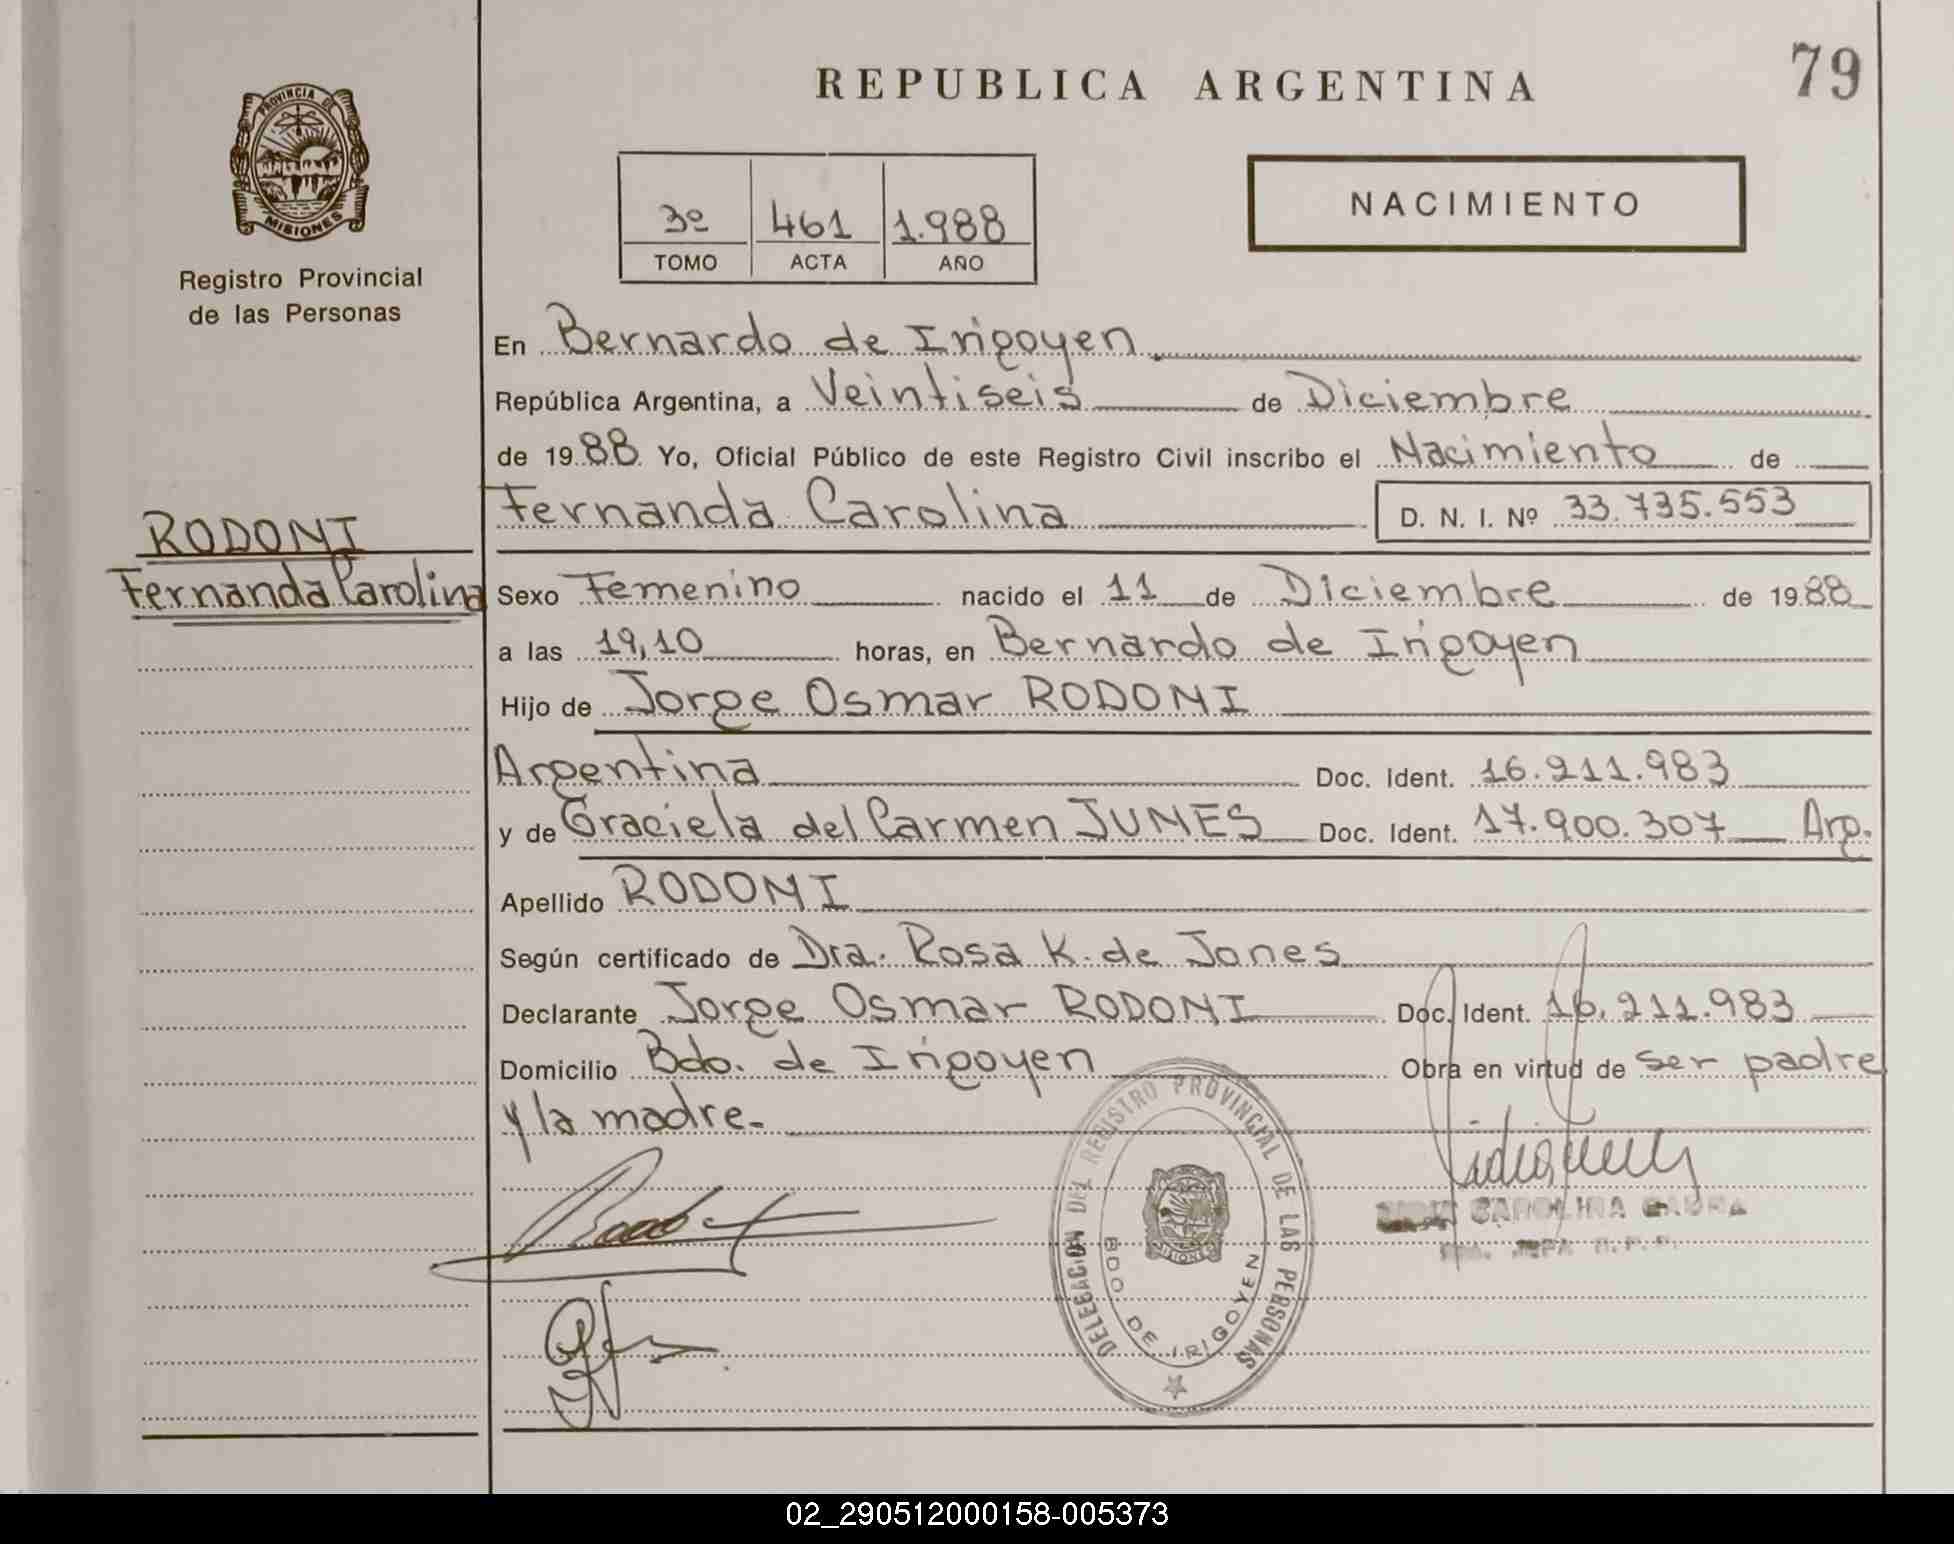 79
REPUBLICA ARGENTINA
PROVINCIA DE
MISIONES
Registro Provincial
de las Personas
3º 461 1.988
TOMO ACTA AÑO
NACIMIENTO
En Bernardo de Irigoyen
República Argentina, a Veintiseis de Diciembre
de 1988 Yo, Oficial Público de este Registro Civil inscribo el Nacimiento de
Fernanda Carolina D. N. I. Nº 33.735.553
RODONI
Fernanda Carolina
Sexo Femenino nacido el 11 de Diciembre de 1988
a las 19,10 horas, en Bernardo de Irigoyen
Hijo de Jorge Osmar RODONI
Argentina Doc. Ident. 16.211.983
y de Graciela del Carmen JUNES Doc. Ident. 17.900.307 Arg.
Apellido RODONI
Según certificado de Dra. Rosa K. de Jones
Declarante Jorge Osmar RODONI Doc. Ident. 16.211.983
Domicilio Bdo. de Irigoyen Obra en virtud de ser padre
y la madre.-
DELEGACION DEL REGISTRO PROVINCIAL DE LAS PERSONAS
BDO DE IRIGOYEN
MISIONES
CAROLINA
JEFA R.P.P.
02_290512000158-005373